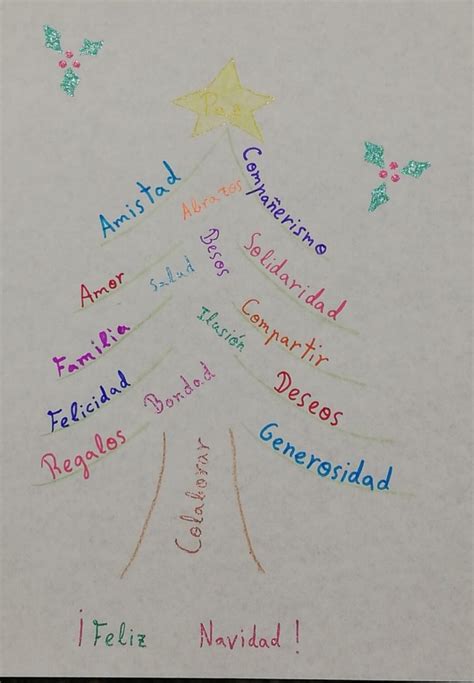 Paz
Amistad
Abrazos
Compañerismo
Besos
Amor
Salud
Solidaridad
Familia
Ilusión
Compartir
Felicidad
Bondad
Deseos
Regalos
Colaborar
Generosidad
¡Feliz Navidad!